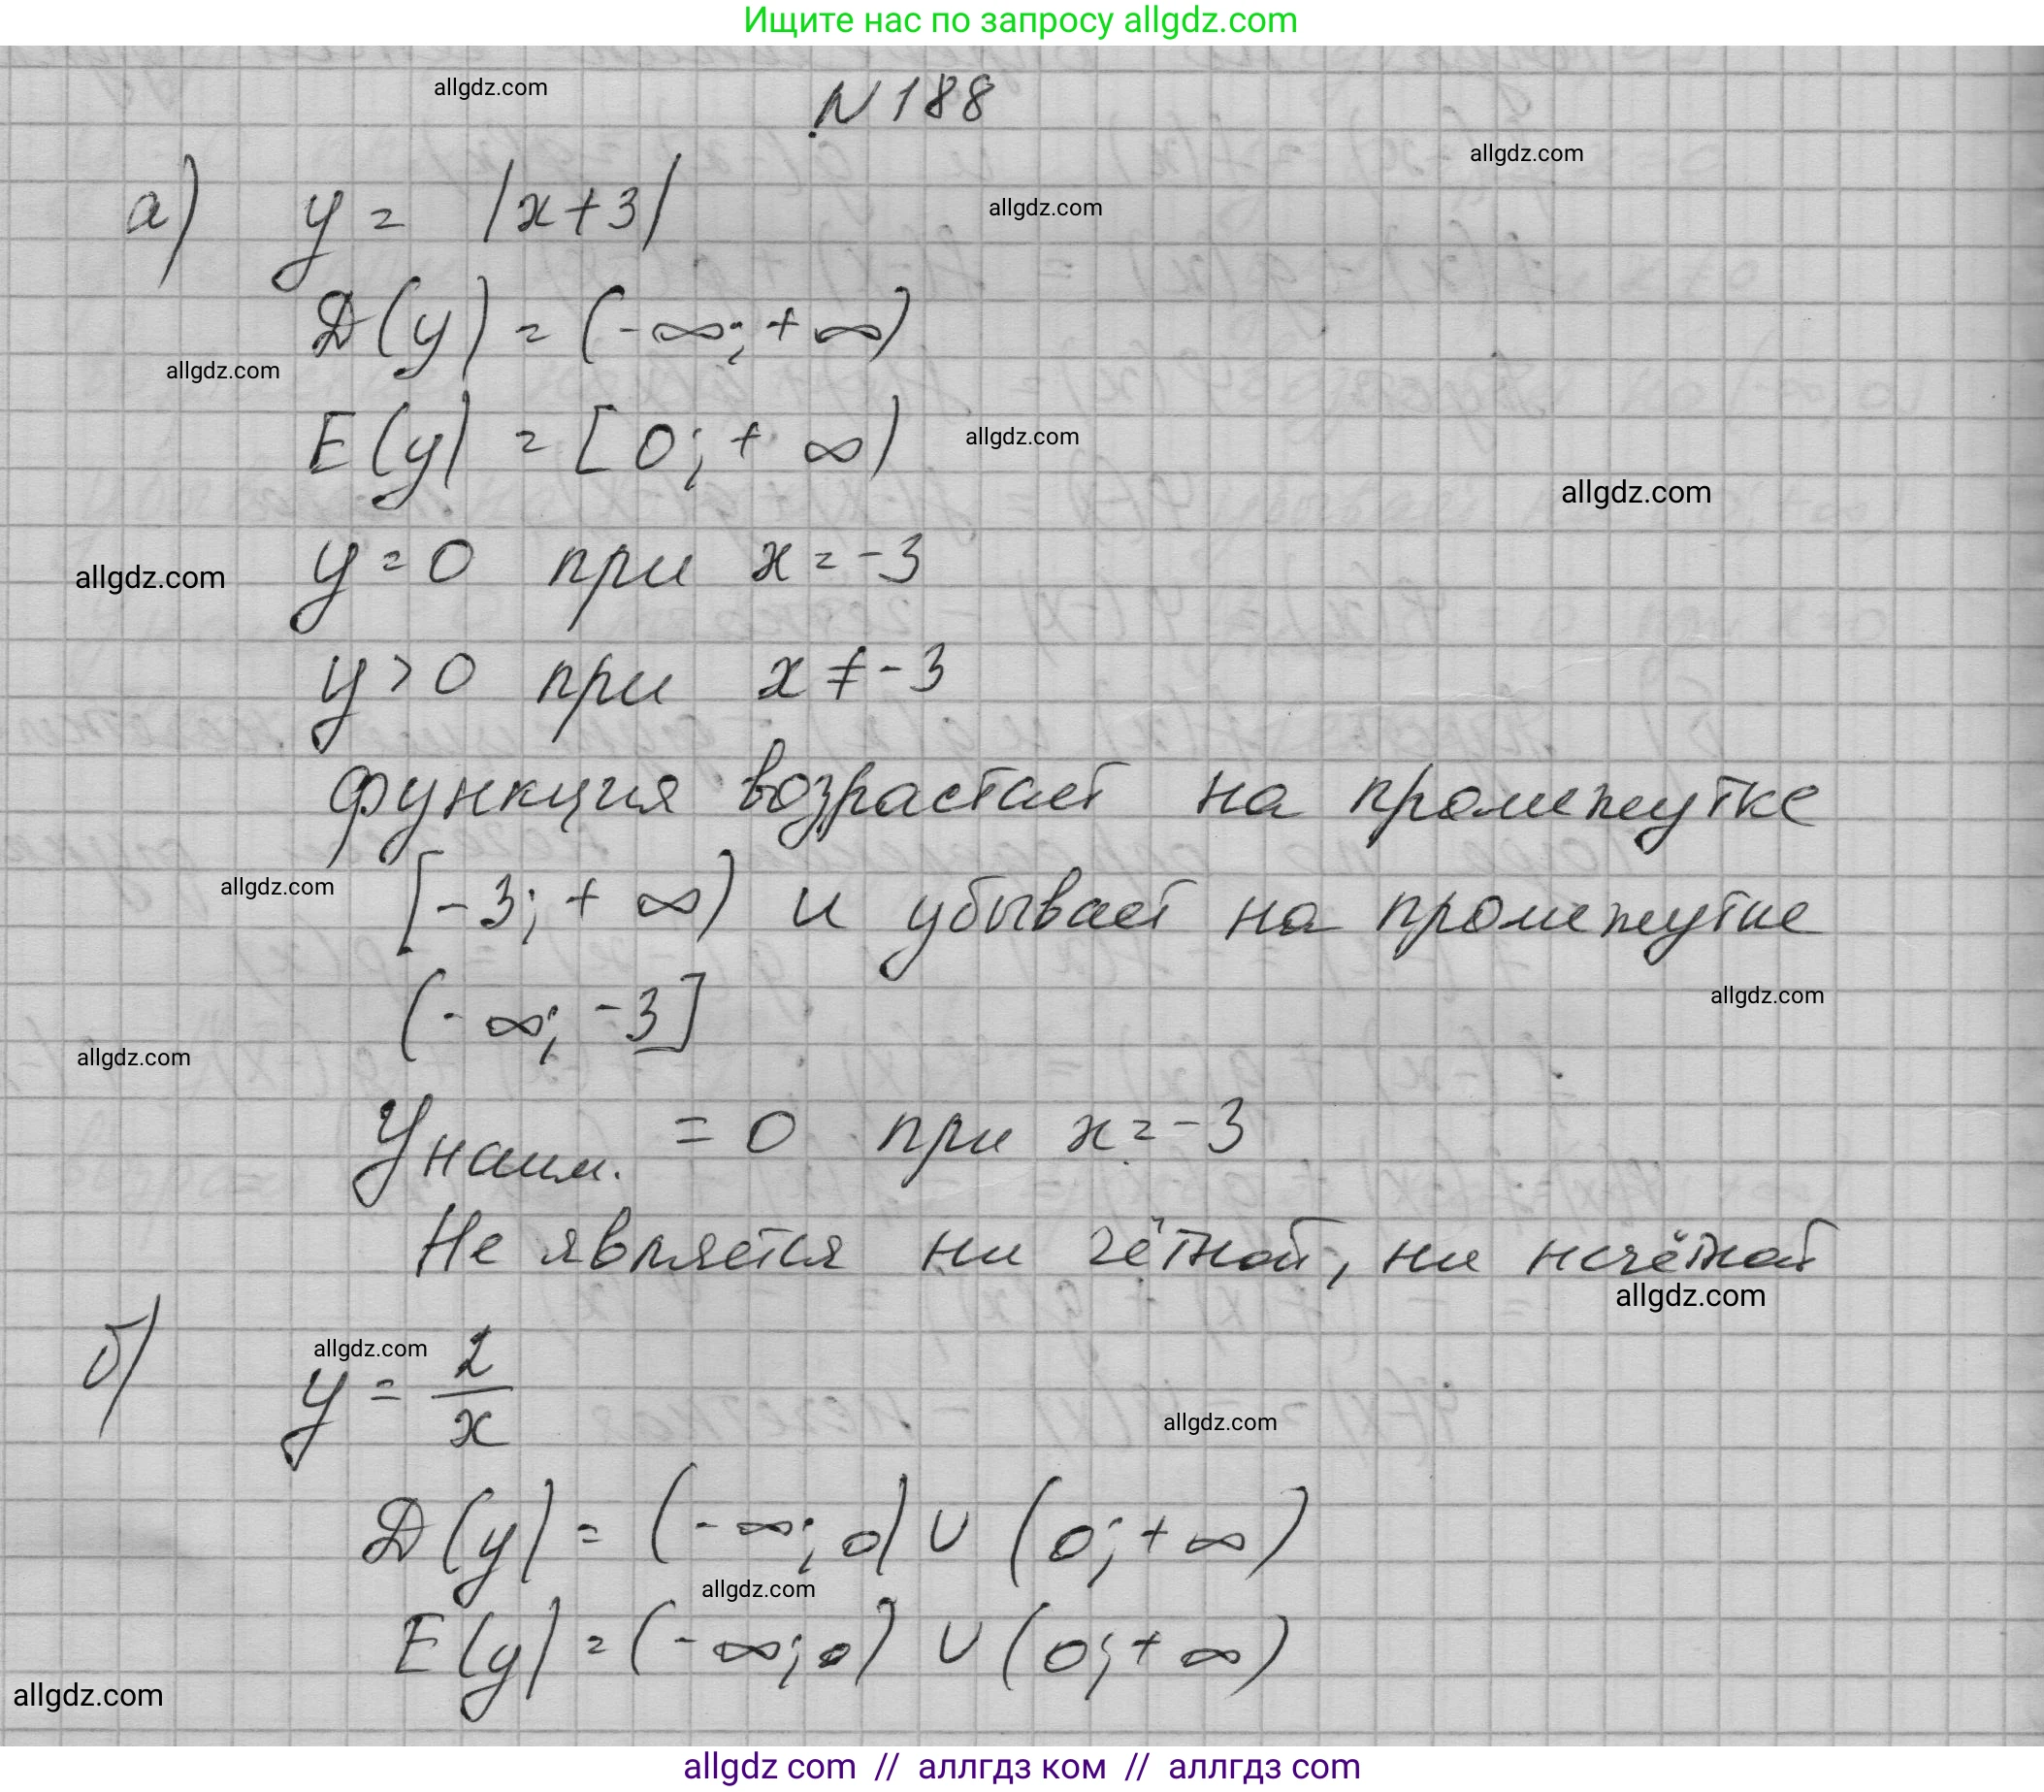 Ищите нас по запросу allgdz.com
allgdz.com
№ 188
allgdz.com
а) y = |x+3|
allgdz.com
D(y) = (-∞; +∞)
allgdz.com
E(y) = [0; + ∞)
allgdz.com
allgdz.com
y = 0 при x = -3
allgdz.com
y > 0 при x ≠ -3
функция возрастает на промежутке
allgdz.com
[-3; + ∞) и убывает на промежутке
(-∞; -3]
allgdz.com
allgdz.com
y наим. = 0 при x = -3
Не является ни чётной, ни нечётной
allgdz.com
allgdz.com
б) y = 2/x
allgdz.com
D(y) = (-∞; 0) ∪ (0; +∞)
allgdz.com
E(y) = (-∞; 0) ∪ (0; +∞)
allgdz.com
allgdz com // аллгдз ком // аллгдз com